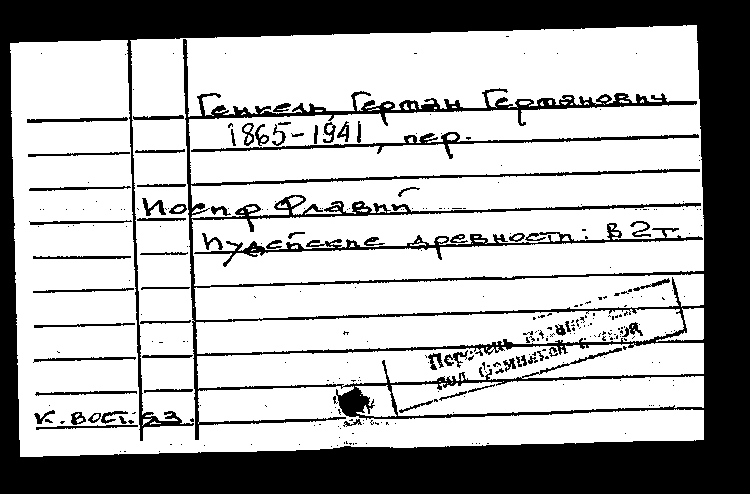 Генкель, Герман Германович
1865-1941, пер.
Иосиф Флавий
Иудейские древности: В 2 т.
Перечень изданий см.
под фамилией автора
К. вост. яз.